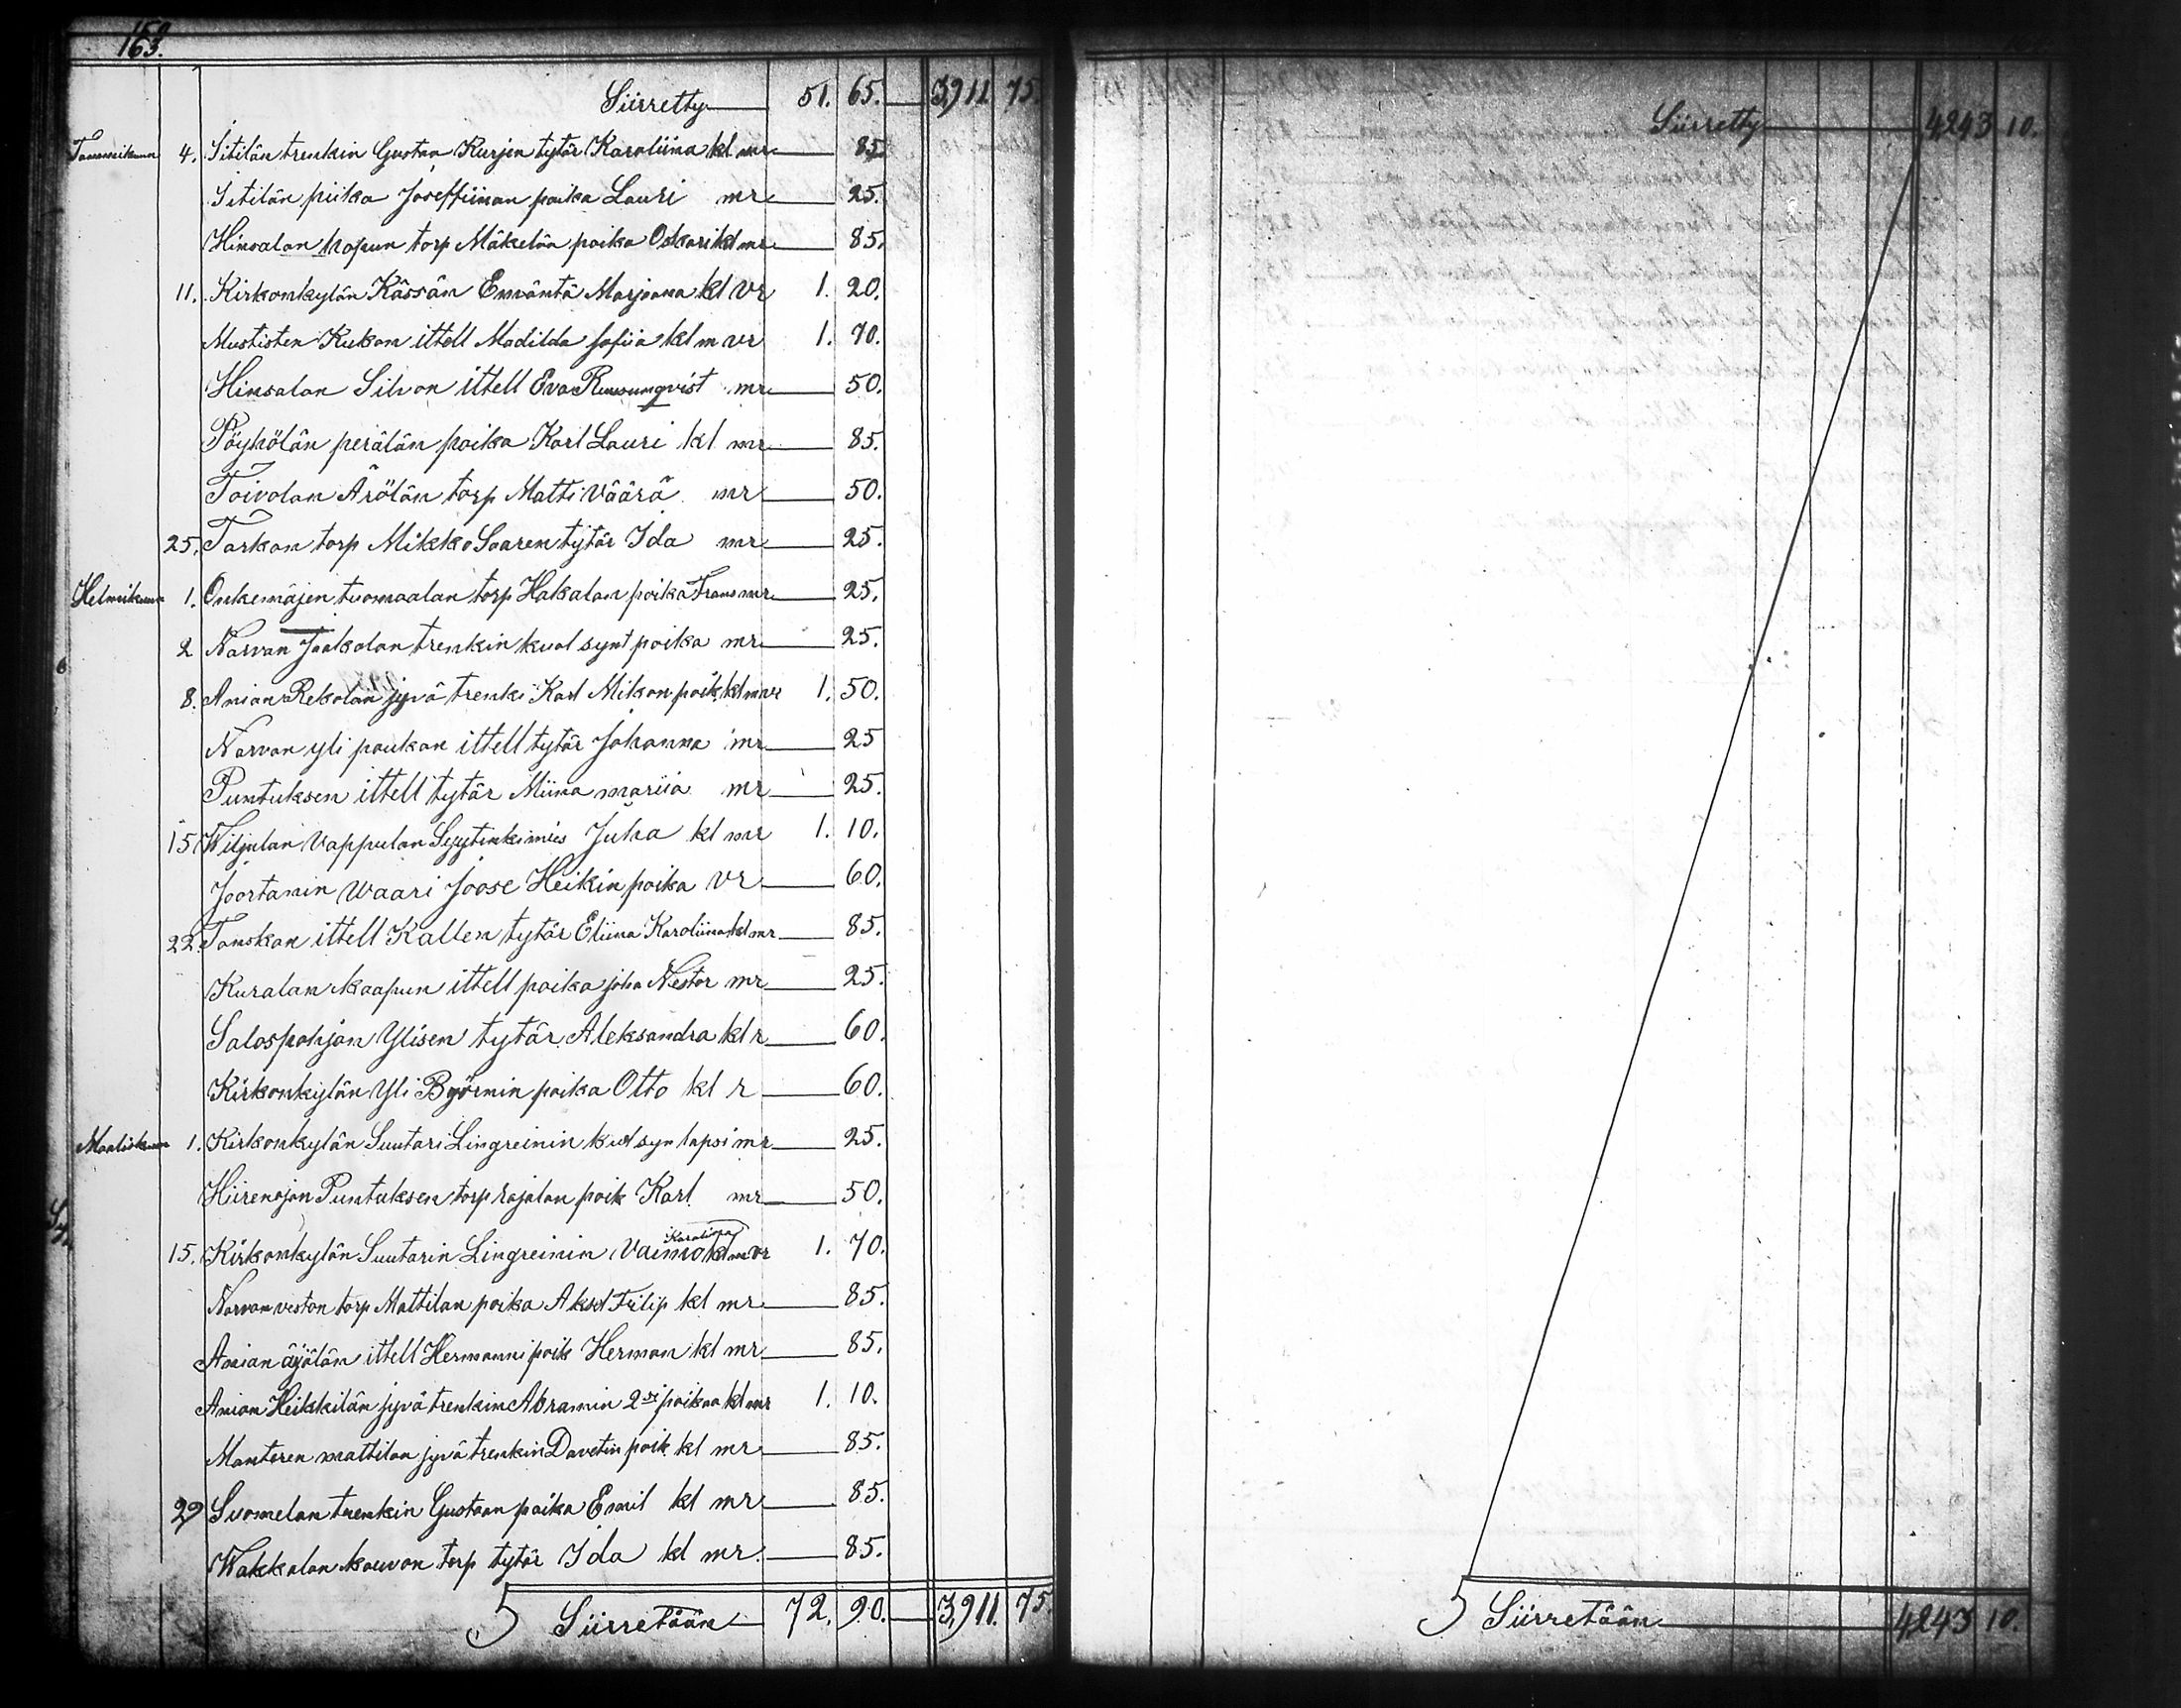 163.
Siirretty 51. 65. 3,911 75.
Tammikuun 4. Sitilän trenkin Gustaa Kurjen tytär Karoliina kl mr 85
Sitilän piika Joseffiinan poika Lauri mr 25.
Hinsalan hopun torp Mäkelän poika Oskari kl mr 85.
11. Kirkonkylän Kässän Emäntä Marjaana kl vr 1. 20.
Mustisten Kukon ittell Madilda Sofiia kl m vr 1. 70.
Hinsalan Silvon ittell Eva mr 50.
Pöyhölän perälän poika Karl Lauri kl mr 85.
Toivolan Ärölän torp Matti Väärä mr 50.
25. Tarkan torp Mikko Saaren tytär Ida mr 25.
Helmikuun 1. Onkemäjen tuomaalan torp Hakalan poika Frans mr 25.
2 Narvan Jaakolan trenkin kuol synt poika mr 25.
8. Anian Rekolan jyvä trenki Karl Mikon poik. kl m vr 1. 50.
Narvan yli paukan ittell tytär Johanna mr 25
Puntuksen ittell tytär Miina mariia mr 25.
15. Wiljulan Vappulan Syytinkimies Juha kl mr 1. 10.
Joortanin Waari Joose Heikin poika vr 60.
22. Tanskan ittell Kallen tytär Eliina Karoliina kl mr 85.
Kuralan kaapun ittell poika joha Nestor mr 25.
Salospohjan Ylisen tytär Aleksandra kl r 60.
Kirkonkylän Yli Byörnin poika Otto kl r 60.
Maaliskuun 1. Kirkonkylän Suutari Lingreinin kuol syn lapsi mr 25.
Hiirenojan Puntuksen torp rajalan poik Karl mr 50.
15. Kirkonkylän Suutarin Lingreinin Vaimo Karoliina kl m vr 1. 70.
Narvan veston torp Mattilan poika Aksel Filip kl mr 85.
Anian äijälän ittell Hermanni poik Herman kl mr 85.
Anian Heikkilän jyvä trenkin Abramin 2si poikaa kl mr 1. 10.
Manteren mattilan jyvä trenkin Davetin poik kl mr 85.
29 Suomelan trenkin Gustaan poika Emil kl mr 85.
Wakkalan kouvon torp tytär Ida kl mr. 85.
Siirretään 72. 90. 3,911. 75.
Siirretty 4243 10.
Siirretään 4243 10.